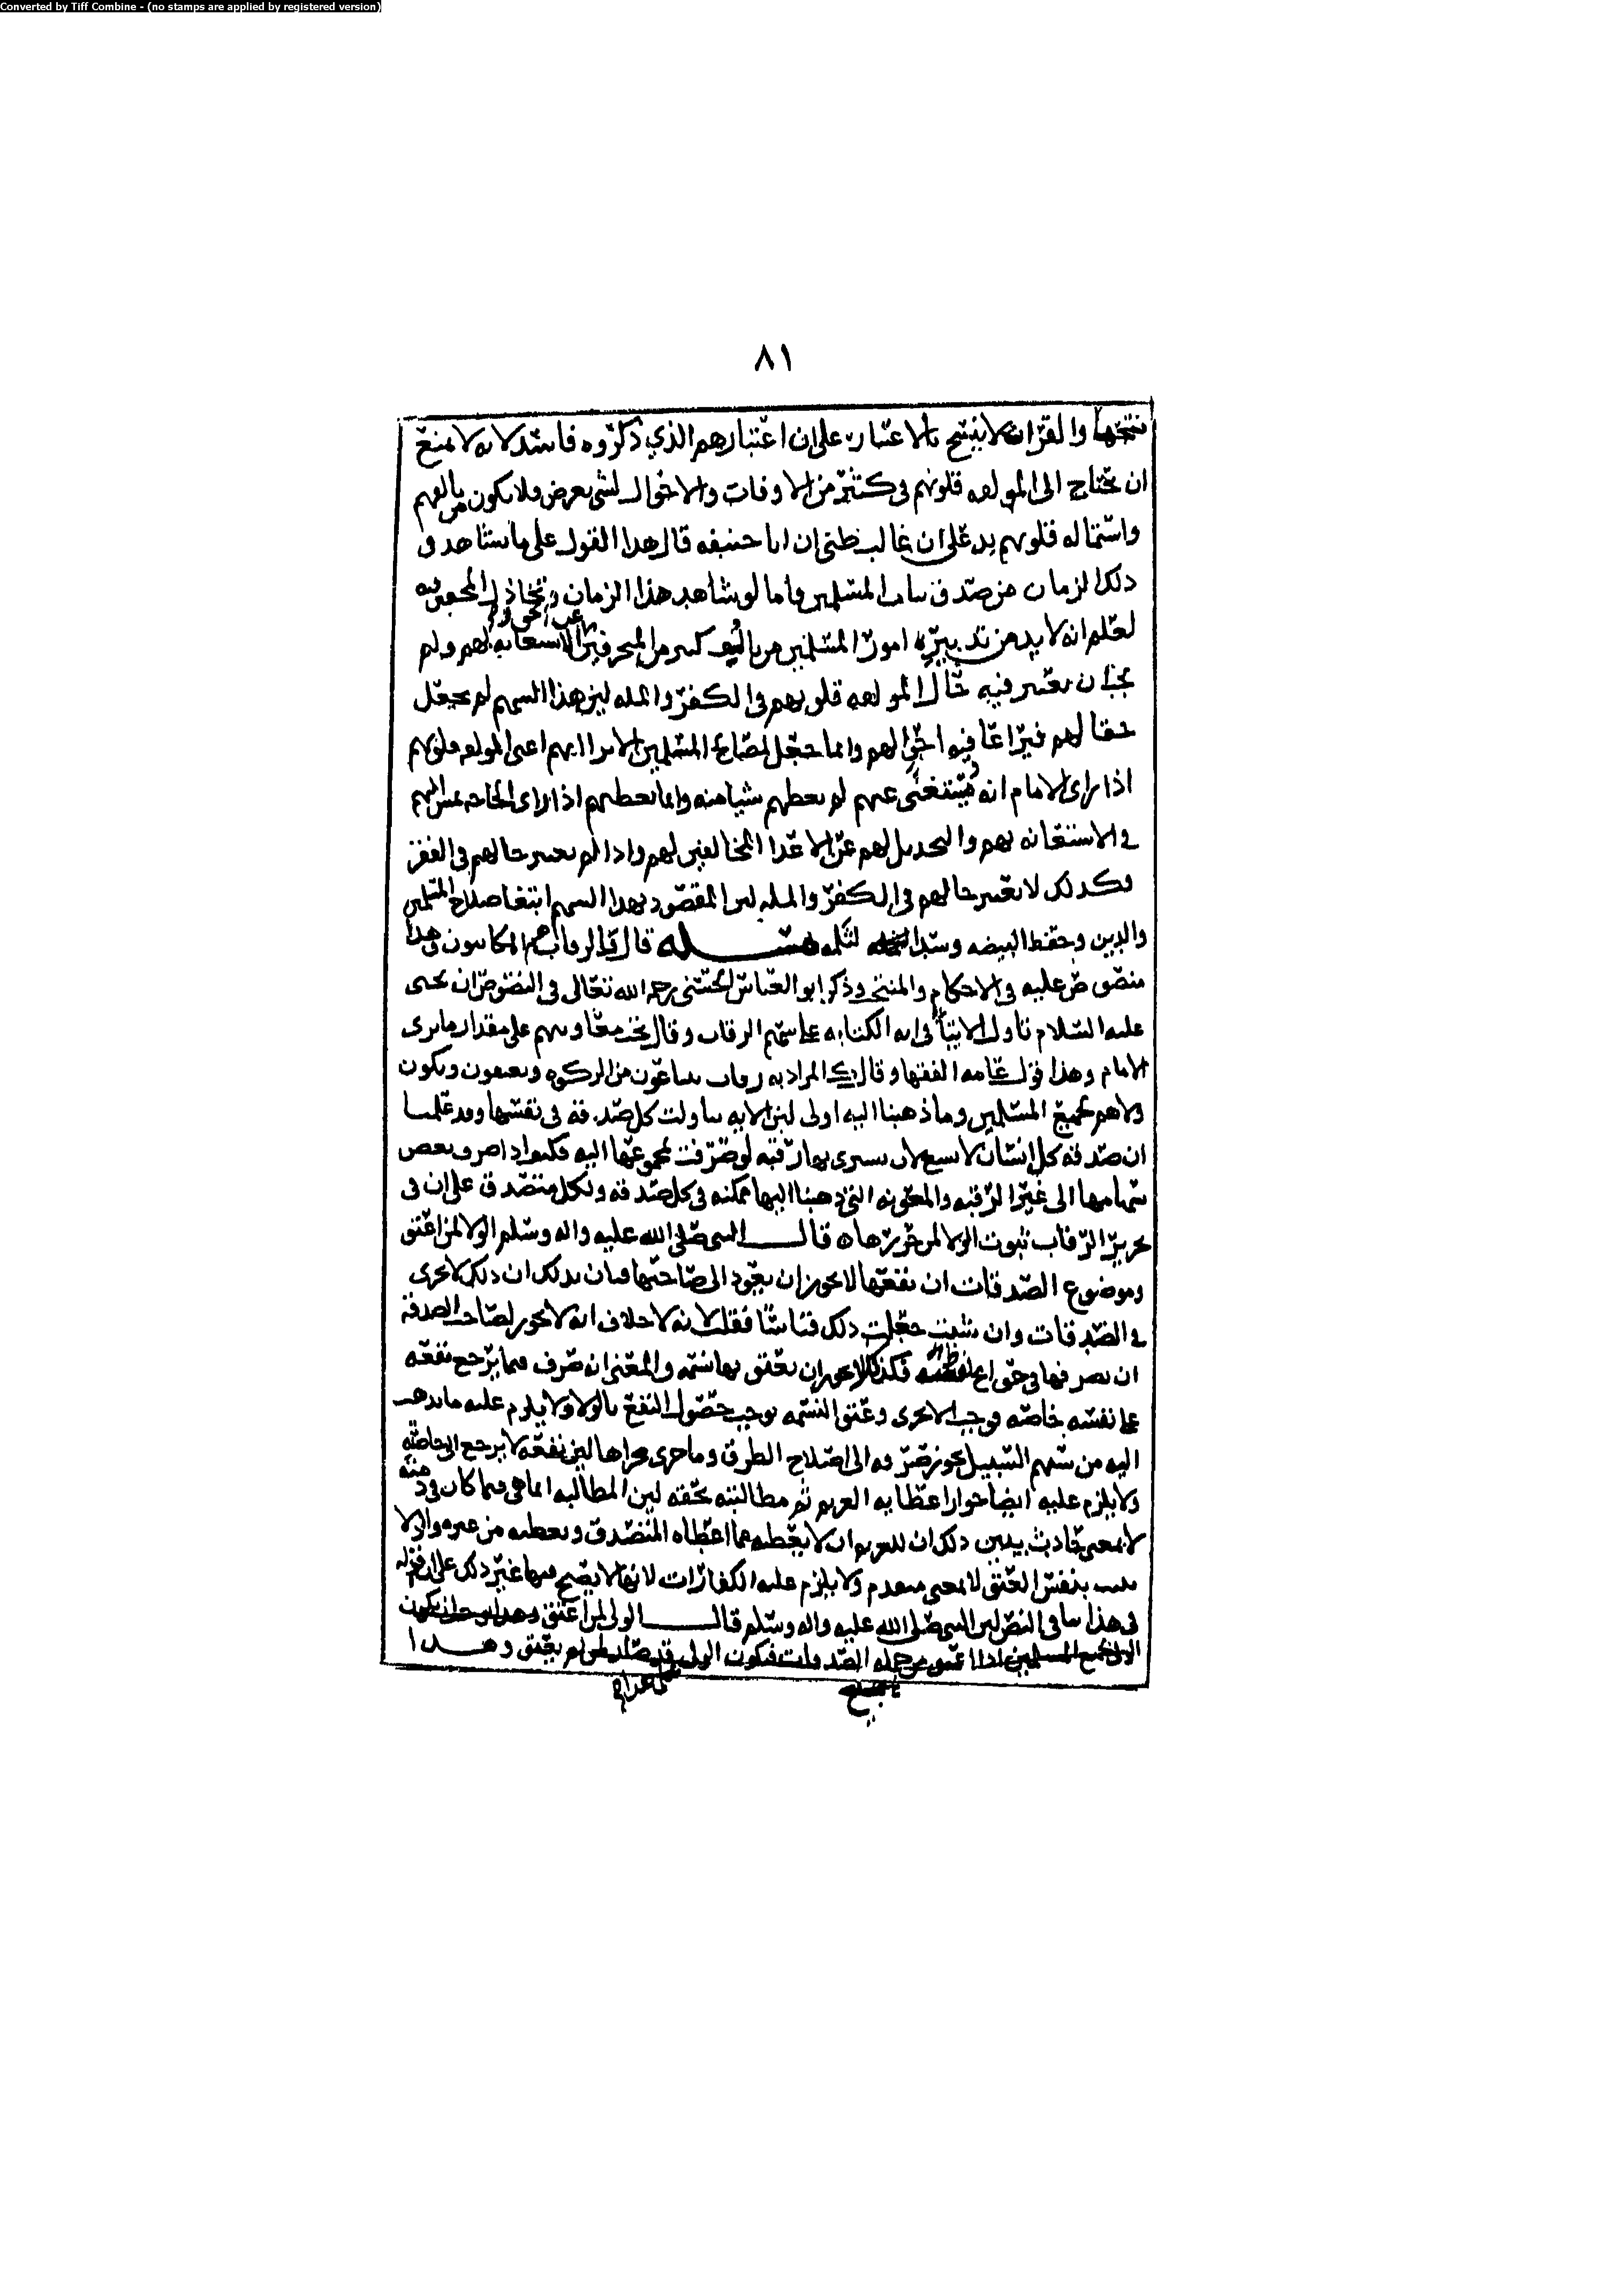 Converted by Tiff Combine - (no stamps are applied by registered version)
٨١
نسخها والقران لا ينسخ بالاعتبار على ان اعتبارهم الذي ذكروه فاسد لانه لا يمنع
ان يحتاج الى المولفه قلوبهم في كثير من الاوقات والاحوال لشي يعرض ولا يكون من تالفهم
واستماله قلوبهم بد على ان غالب ظني ان ابا حنيفه قال هذا القول على ما شاهد في
ذلك الزمان من صدق نيات المسلمين واما لو شاهد هذا الزمان وتخاذل المحقين فيه
لعلم انه لا بد من تدبير امور المسلمين من تاليف كثير من المنحرفين عن الحق والاستعانه بهم ولم
يجب ان يعتبر فيه حال المولفه قلوبهم في الكفر والمله لان هذا السهم لم يجعل
حقا لهم فيراعا فيه احوالهم وانما جعل لمصالح المسلمين الا ترا انهم اعني المولفه قلوبهم
اذا راى الامام انه مستغنى عنهم لم يعطهم شيا منه وانما يعطيهم اذا راى الحاجه تمس اليهم
في الاستعانه بهم والتخذيل لهم عن الاعدا المخالفين لهم واذا لم يعتبر حالهم في الفقر
فكذلك لا يعتبر حالهم في الكفر والمله لان المقصود بهذا السهم ابتغا صلاح المسلمين
والدين وحفظ البيضه وسد الثلمه مسله قال والرقاب هم المكاتبون وهذا
منصوص عليه في الاحكام والمنتخب وذكر ابو العباس الحسني رحمه الله تعالى في النصوص ان يحيى
عليه السلام تاول الايتا في ايه الكتابه على سهم الرقاب وقال يجب معاونتهم على مقدار ما يرى
الامام وهذا قول عامه الفقها وقال ك المراد به رقاب يبتاعون من الزكوه ويعتقون ويكون
ولاهم لجميع المسلمين وما ذهبنا اليه اولى لان الايه تناولت كل صدقه في نفسها وقد علمنا
ان صدقه كل انسان لا تسع لان يشترى بها رقبه لو صرفت مجموعها اليه فكيف اذا صرف بعض
سهامها الى غير الرقبه والمعونه التي ذهبنا اليها ممكنه في كل صدقه ولكل متصدق على ان في
تحرير الرقاب ثبوت الولا لمن حررها قال النبي صلى الله عليه واله وسلم الولا لمن اعتق
وموضوع الصدقات ان نفعها لا يجوز ان يعود الى صاحبها فبان بذلك ان ذلك لا يجزى
في الصدقات وان شيت جعلت ذلك قياسا فقلت لانه لا خلاف انه لا يجوز لصاحب الصدقه
ان يصرفها في حق فكذلك لا يجوز ان يعتق بها نسمه والمعنى انه صرف فيما يرجع نفعه
على نفسه خاصه فوجب الا يجزى وعتق النسمه يوجب حصول النفع بالولا ولا يلزم عليه ما يذهب
اليه من سهم السبيل يجوز صرفه الى اصلاح الطرق وما جرى مجراها لان نفعه لا يرجع الى خاصته
ولا يلزم عليه ايضا جواز اعطايه الغريم ثم مطالبته بحقه لان المطالبه انما هي فيما كان في ذمته
لا بمعنى حادث يبين ذلك ان للغريم ان لا يعطيه مما اعطاه المتصدق ويعطيه من غيره والولا
يثبت بنفس العتق لا لمعنى متقدم ولا يلزم عليه الكفارات لانها لا يصح فيها غير ذلك على ان قوله
في هذا ينافي النص لان النبي صلى الله عليه واله وسلم قال الولا لمن اعتق
الولا لجميع المسلمين اذا اعتق من جمله الصدقات فيكون الولا قد صار لمن لم يعتق وهذا